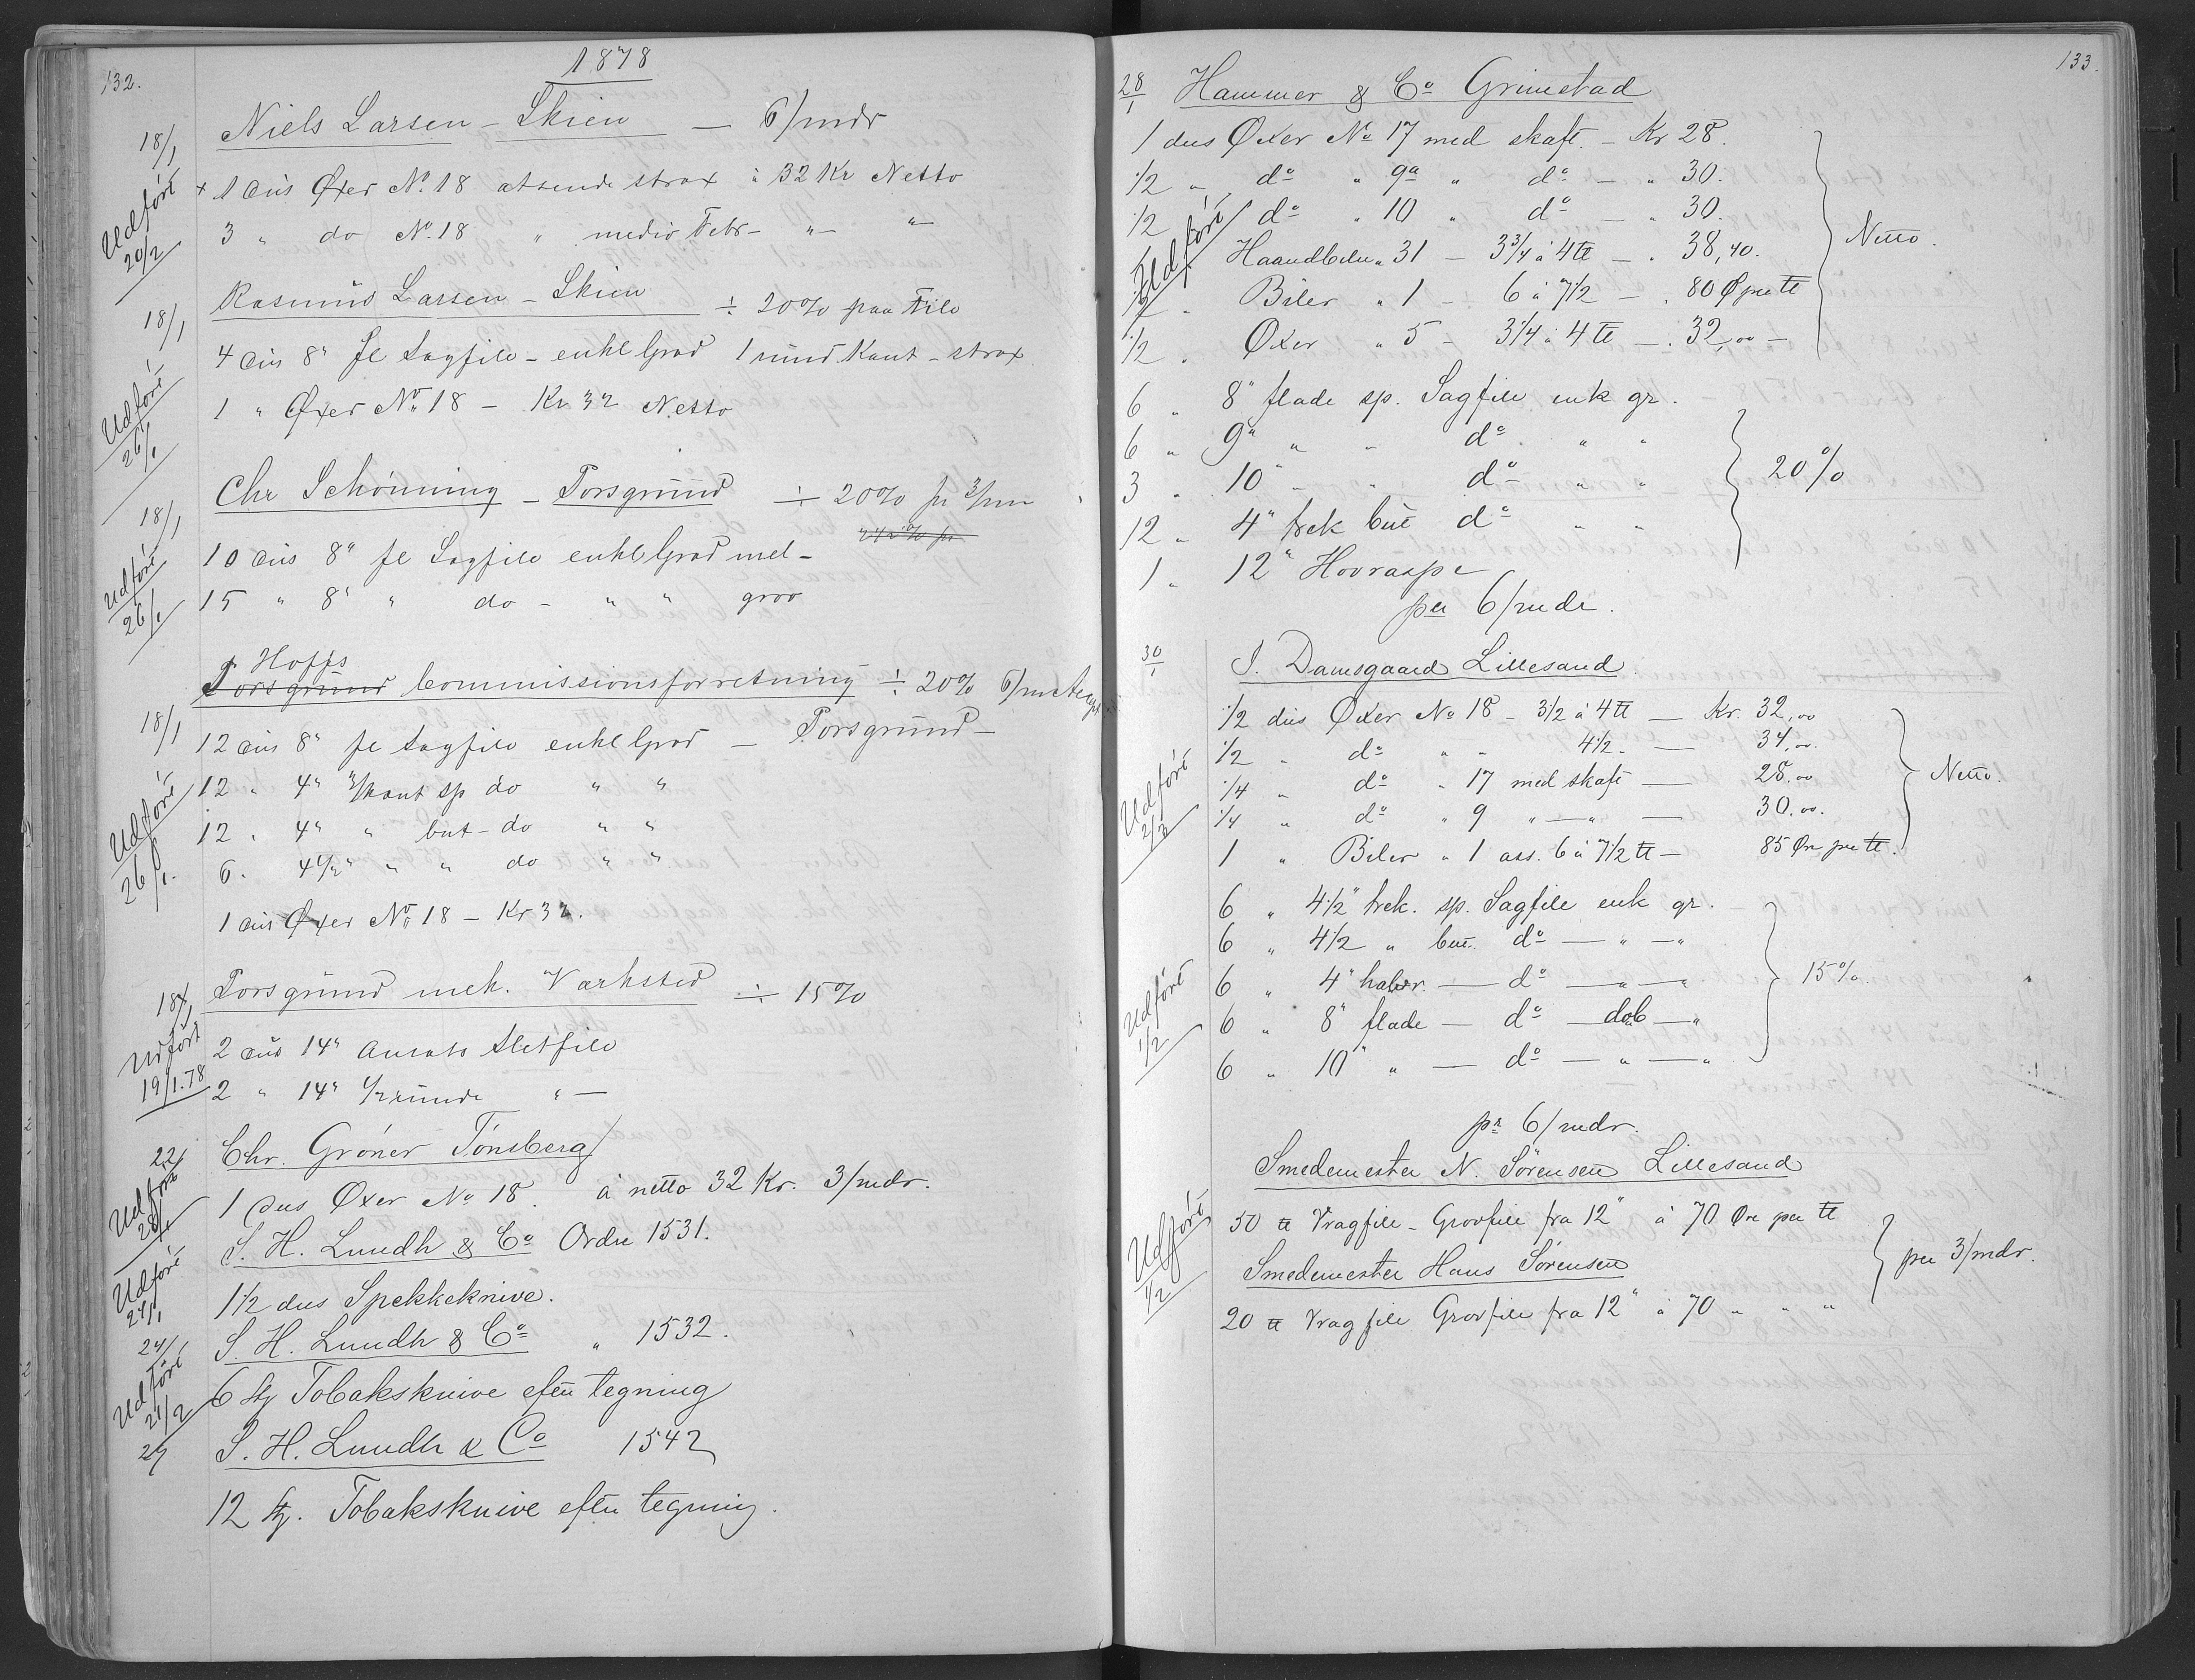 132.
1878
18/1 Niels Larsen - Skien — 6/mdr
Udført 20/2
x 1 dus Øxer No. 18 afsende strax à 32 Kr Netto
3 " do No. 18 " medio Febr - " - "
18/1 Rasmus Larsen - Skien ÷ 20% paa File
4 dus 8" fl Sagfile - enkl Grad 1 rund Kant - strax
Udført 26/1
1 " Øxer No. 18 - Kr 32 Netto
18/1 Chr Schønning - Porsgrund ÷ 20% pr 3/mn
10 dus 8" fl Sagfile enkl Grad mel -
Udført 26/1
15 " 8" " do - " " grov
Hoffs
Porsgrund Commissionsforretning ÷ 20% 6/m
18/1 12 dus 8" fl Sagfile enkl Grad — Porsgrund -
12 " 4" 3/kant sp do " "
Udført 26/1.
12 " 4" " but - do " "
6 " 4 1/2" " " do " "
1 dus Øxer No 18 - Kr 32.
18/1 Porsgrund mek. Værksted ÷ 15%
Udført 19/1.78
2 dus 14" Ansats Sletfile
2 " 14" 1/2 runde " —
22/1 Chr. Gröner Tönsberg
Udført 28/1
1 dus Øxer No 18. à netto 32 Kr. 3/mdr.
S. H. Lundh & Co Ordre 1531.
Udført 24/1
1 1/2 dus Spekkeknive.
24/1 S. H. Lundh & Co " 1532.
Udført 21/2
6 st Tobaksknive efter tegning
27 S. H. Lundh & Co 1542
12 st. Tobaksknive efter tegning.
133.
28/1 Hammer & Co Grimstad
1 dus Øxer No 17 med skaft. - Kr 28.
1/2 " do " 9a " do - " 30.
1/2 " do " 10 " do - " 30.
Udført
Haandbiler " 31 - 3 3/4 à 4 ℔ - " 38,40.
Netto.
Biler " 1 - 6 à 7 1/2 - " 80 Ø pr ℔
1/2 " Øxer " 5 - 3 1/4 à 4 ℔ - . 32,00 -
6 " 8" flade sp. Sagfile enk gr.
6 " 9" " " do " "
3 " 10" " " do " "
20%
12 " 4" trek but do " "
1 " 12" Hovraspe
per 6/mdr.
30/1 S. Damsgaard Lillesand
1/2 dus Øxer No 18 - 3 1/2 à 4 ℔ — Kr. 32,00
1/2 " do " " 4 1/2 " — 34,00.
1/4 " do " 17 med skaft — 28.00
Netto.
Udført 2/3
1/4 " do " 9 " — " — 30.00.
1 " Biler " 1 ass. 6 à 7 1/2 ℔ — 85 Øre per ℔.
6 " 4 1/2" trek. sp. Sagfile enk gr.
6 " 4 1/2 " but. do — " — "
6 " 4" halvr. — do — " — "
15%.
Udført 1/2
6 " 8" flade — do — dob — "
6 " 10" " — do — " — "
pr 6/mdr.
Smedemester N. Sörensen Lillesand
50 ℔ Vragfile - Grovfile fra 12" à 70 Øre per ℔
Udført 1/2
Smedemester Hans Sörensen
per 3/mdr.
20 ℔ Vragfile Grovfile fra 12" à 70 " " "